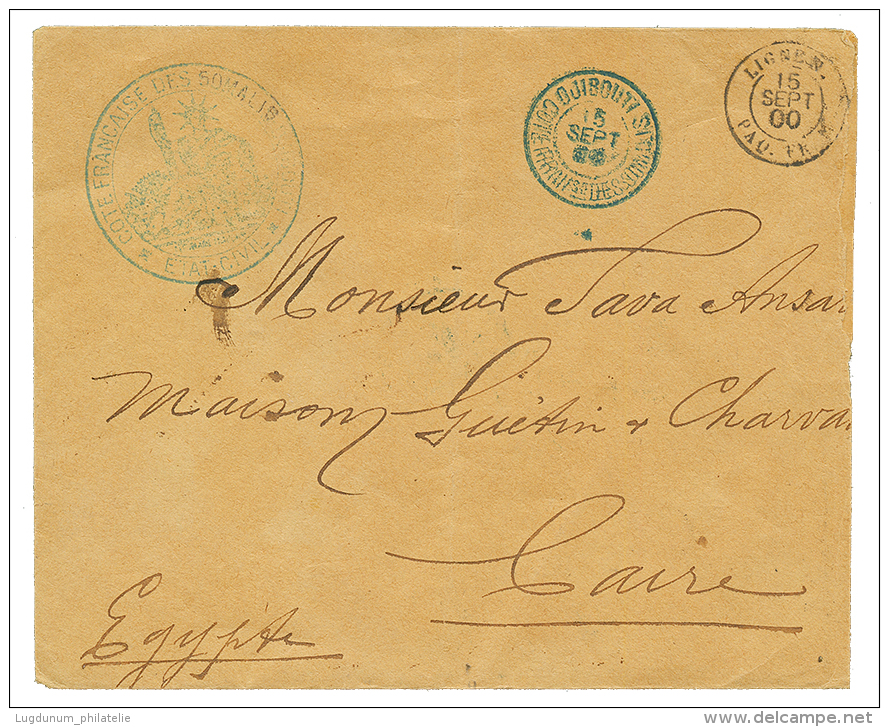 COTE FRANÇAISE DES SOMALIS
* ETAT-CIVIL *
DJIBOUTI
15
SEPT
LIGNE N.
15
SEPT
00
PAQ. FR.
Monsieur Tava Ansar
Maison Guétin & Charva
Caire
Egypte
Lugdunum_philatelie
www.delcampe.net